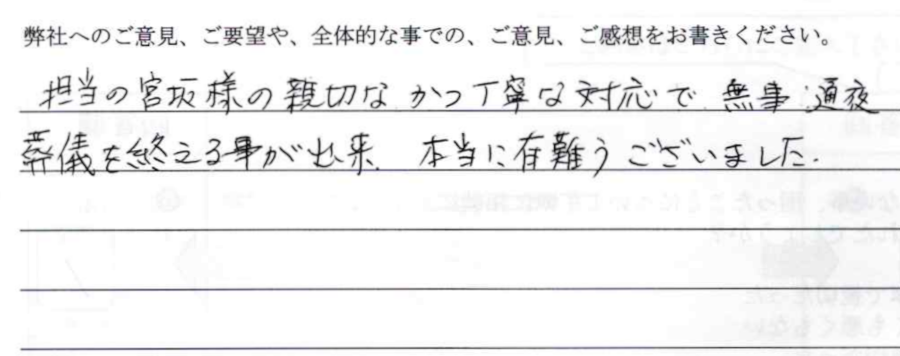 弊社へのご意見、ご要望や、全体的な事での、ご意見、ご感想をお書きください。
担当の宮坂様の親切な かつ丁寧な対応で 無事 通夜
葬儀を終える事が出来 本当に有難うございました.